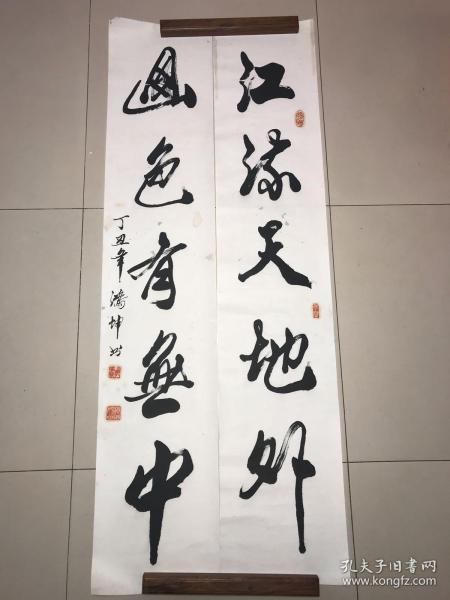 江流天地外
色有無中
丁丑年 坤
孔夫子旧书网
www.kongfz.com